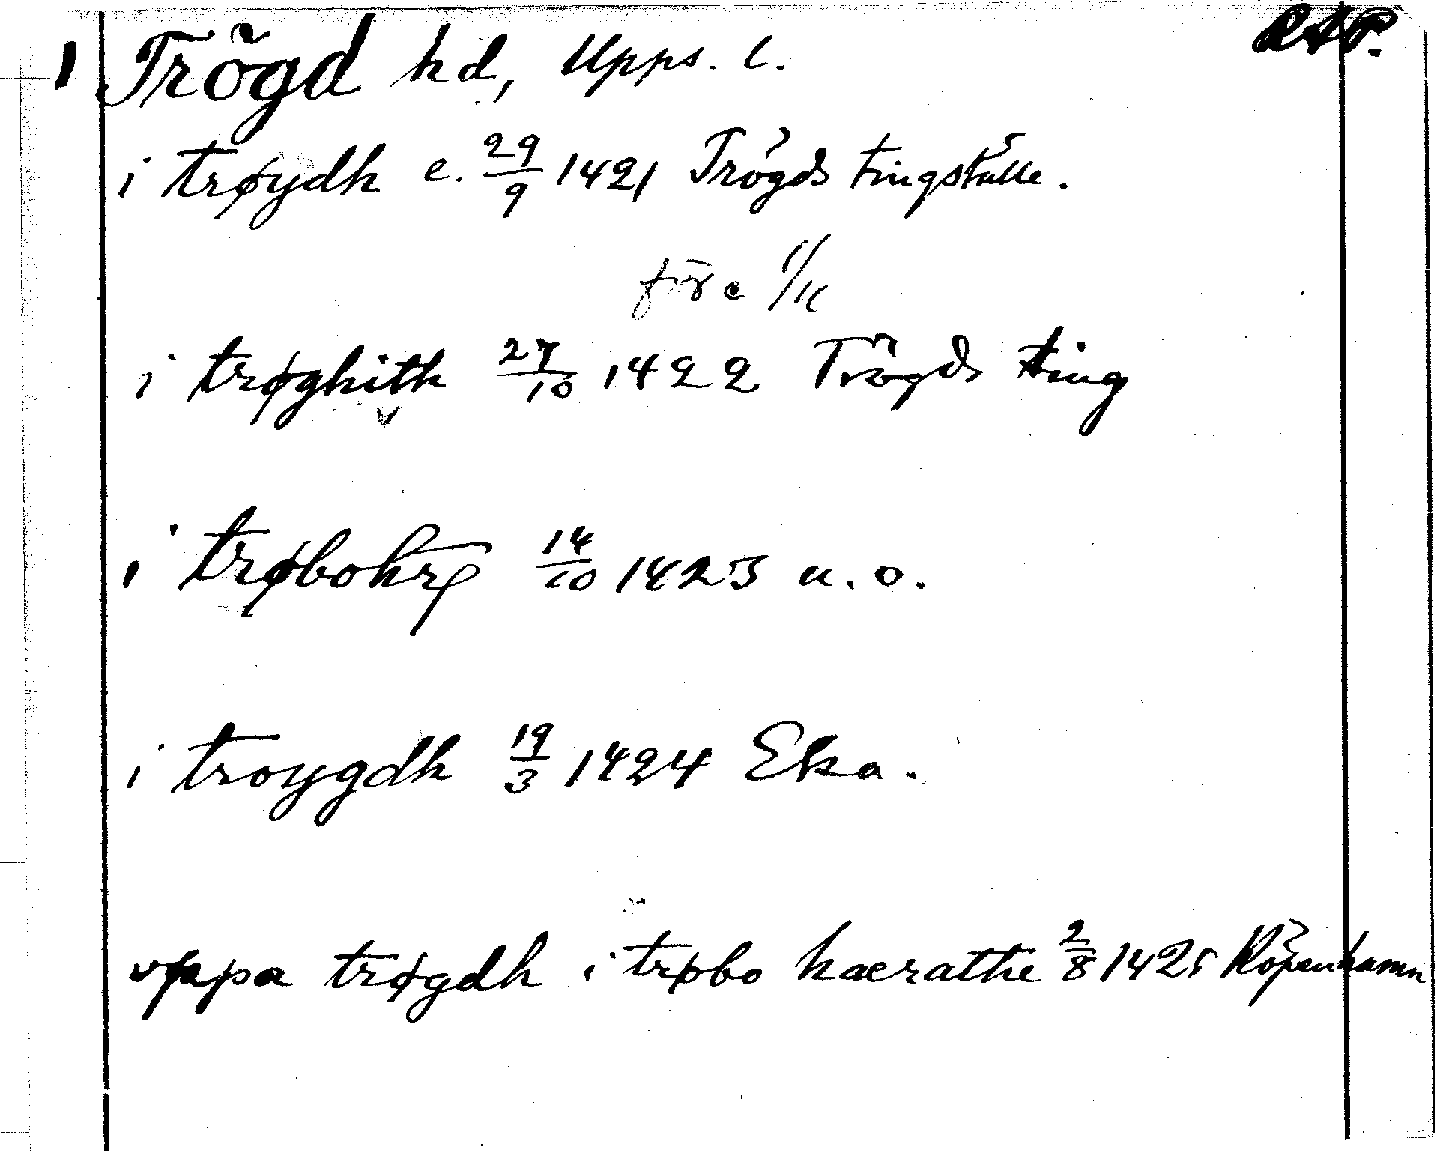 1 Trögd hd, Upps. l. RAP.
i trøydh e. 29/9 1421 Trögds tingställe.
före 1/11
i trøghith 27/10 1422 Trögds ting
i trøbohr 14/10 1423 u.o.
i troygdh 19/3 1424 Eka.
vppa trøgdh i trøbo haerathe 2/8 1425 Köpenhamn